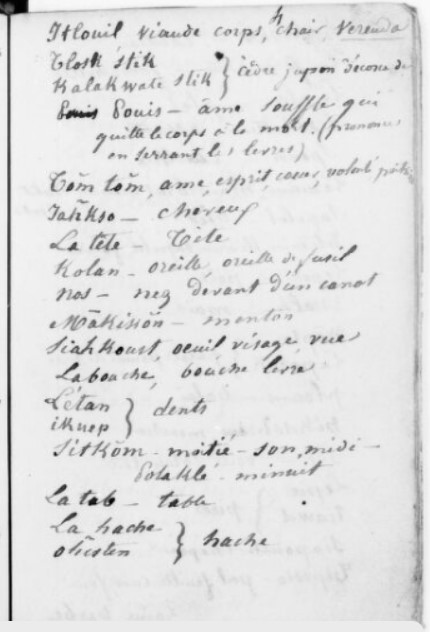 Itlouil viande corps, chair, verenda
Tlosk stik } cèdre jupon d'écorce de
Kalakwate stik
Eouis — âme souffle qui
quitte le corps à la mort. (prononcer
en serrant les levres)
Tŏm tŏm, ame, esprit, cœur, volonté
Iaħkso — cheveux
La tête — Tête
Kolan — oreille, oreille de fusil
Nos — nez devant d'un canot
Mākisŏn — menton
Siahkoust, oeuil visage vue
Labouche, bouche levre
Létan } dents
ikuep
Sitkŏm — moitié — son, midi —
Polaklé — minuit
La tab — table
La hache } hache